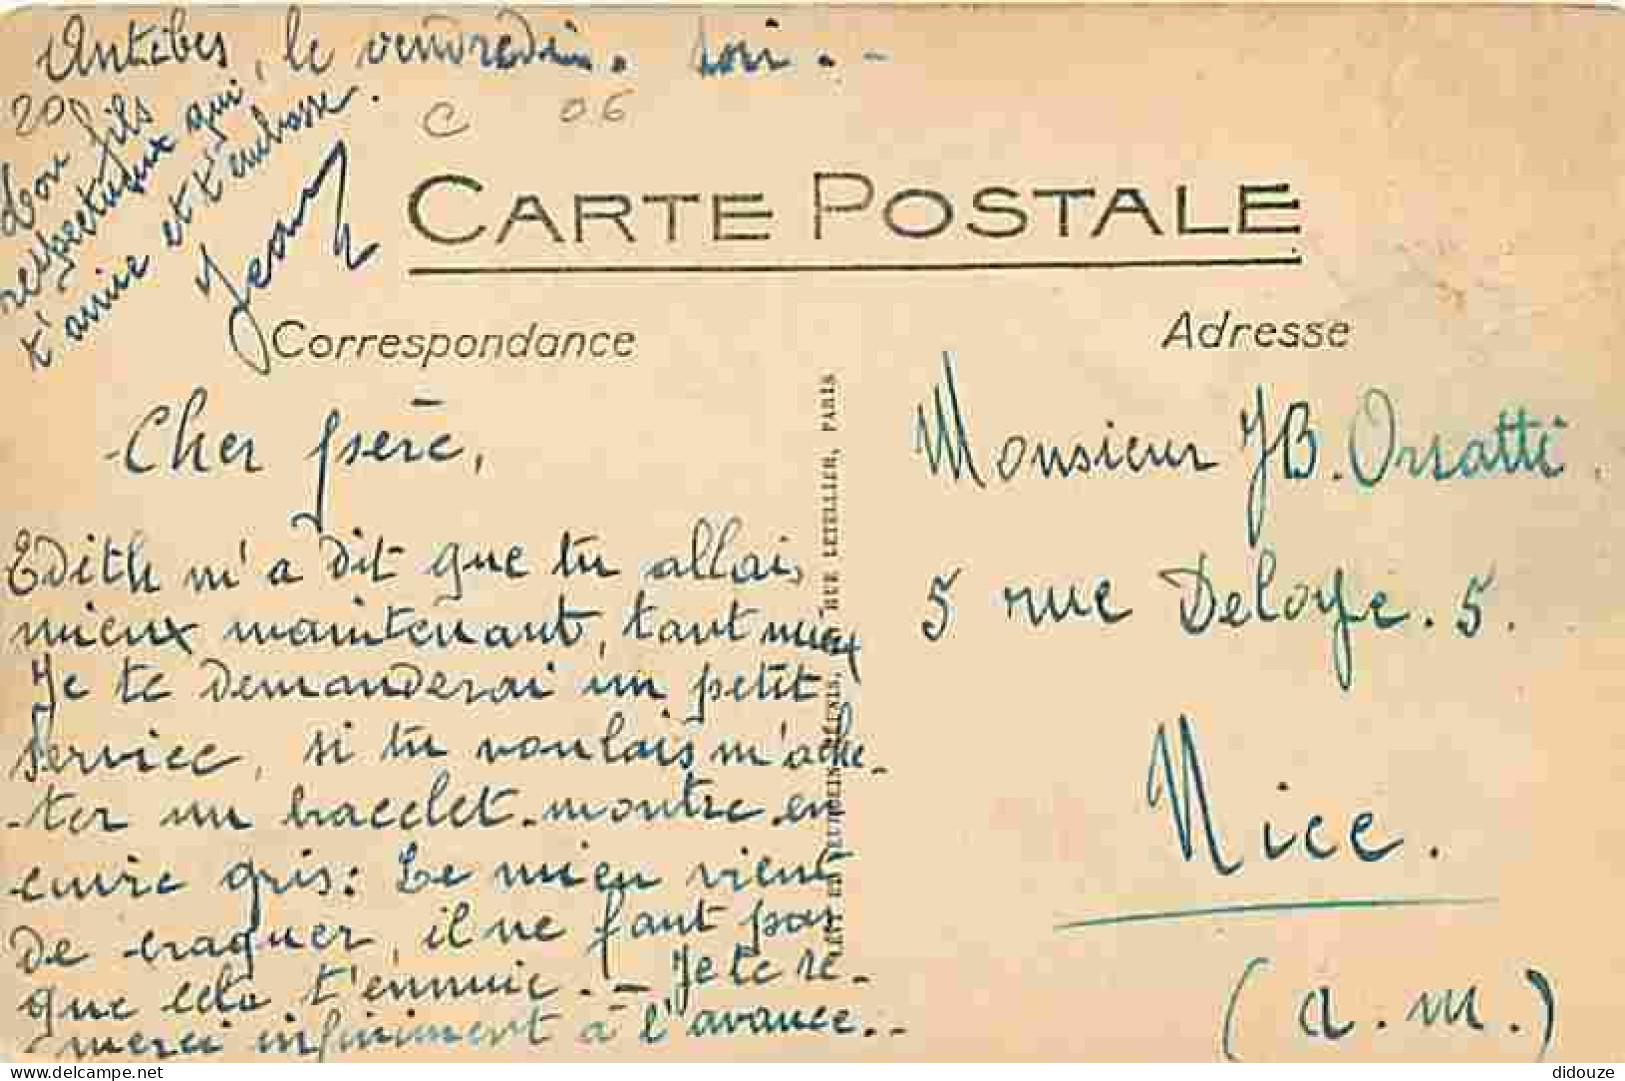 Antibes, le vendredi. soir. -
20
C 06
Ton fils
respectueux qui
t'aime et t'embrasse.
Jean
CARTE POSTALE
Correspondance
Adresse
Cher père,
Edith m'a dit que tu allais
mieux maintenant, tant mieux
Je te demanderai un petit
service, si tu voulais m'ache-
-ter un bracelet-montre en
cuire gris: Le mien vient
de craquer, il ne faut pas
que cela t'ennuie. - Je te re-
-merci infiniment à l'avance. -
LÉVY ET NEURDEIN RÉUNIS, RUE LETELLIER, PARIS
Monsieur JB. Orsatti
5 rue Deloye. 5.
Nice.
(a.m.)
didouze @ delcampe.net